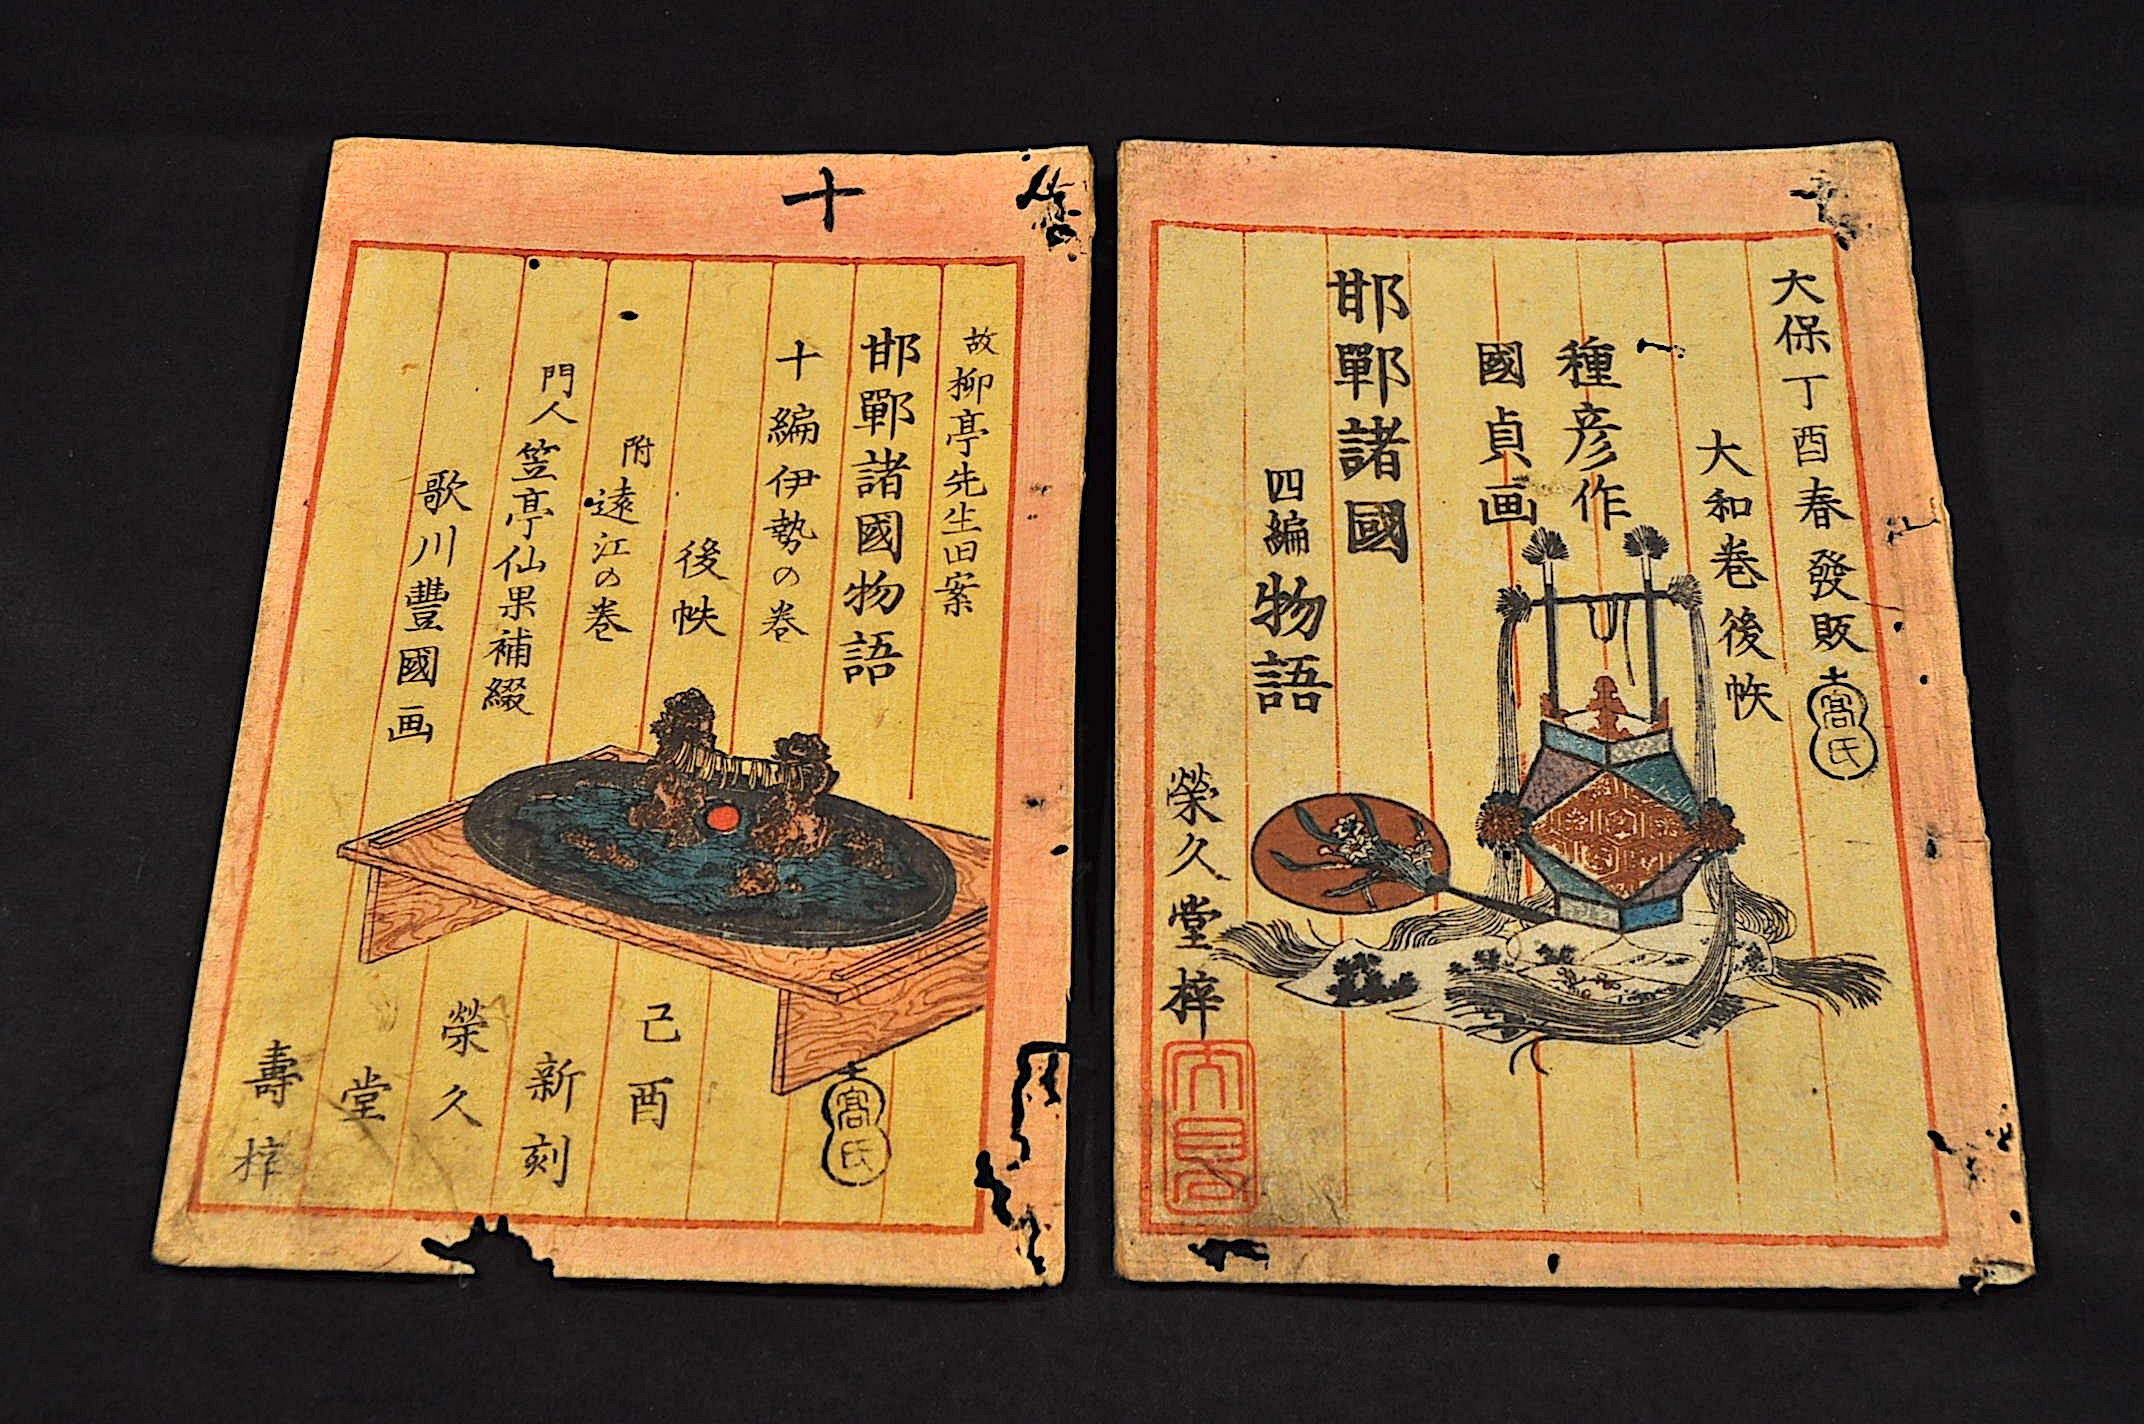 大保丁酉春發販
髙氏
大和巻後帙
種彦作
國貞画
邯鄲諸國
物語
四編
榮久堂梓
十
故柳亭先生旧案
邯鄲諸國物語
十編伊勢の巻
後帙
附遠江の巻
門人笠亭仙果補綴
歌川豐國画
髙氏
己酉
新刻
榮久
堂
壽梓